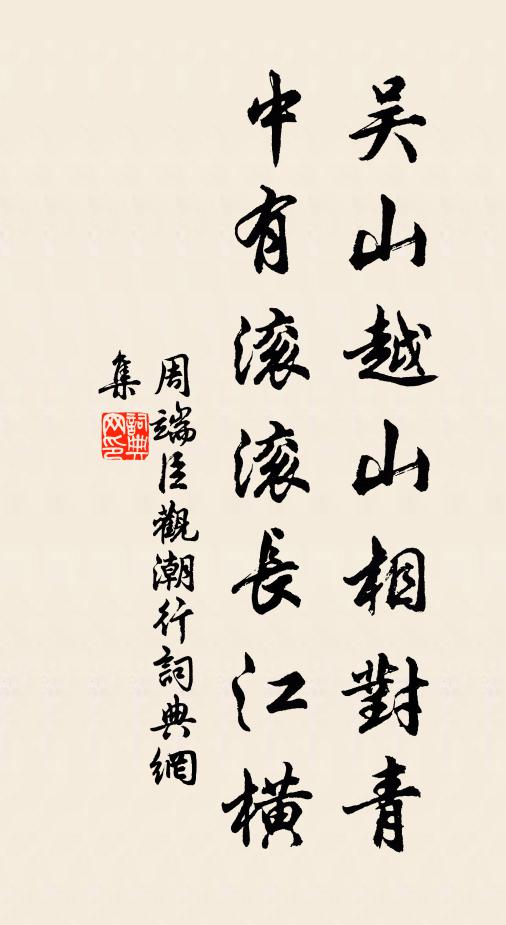 吴山越山相對青
中有滚滚長江橫
周端臣觀潮行詞典網
集
詞典網印